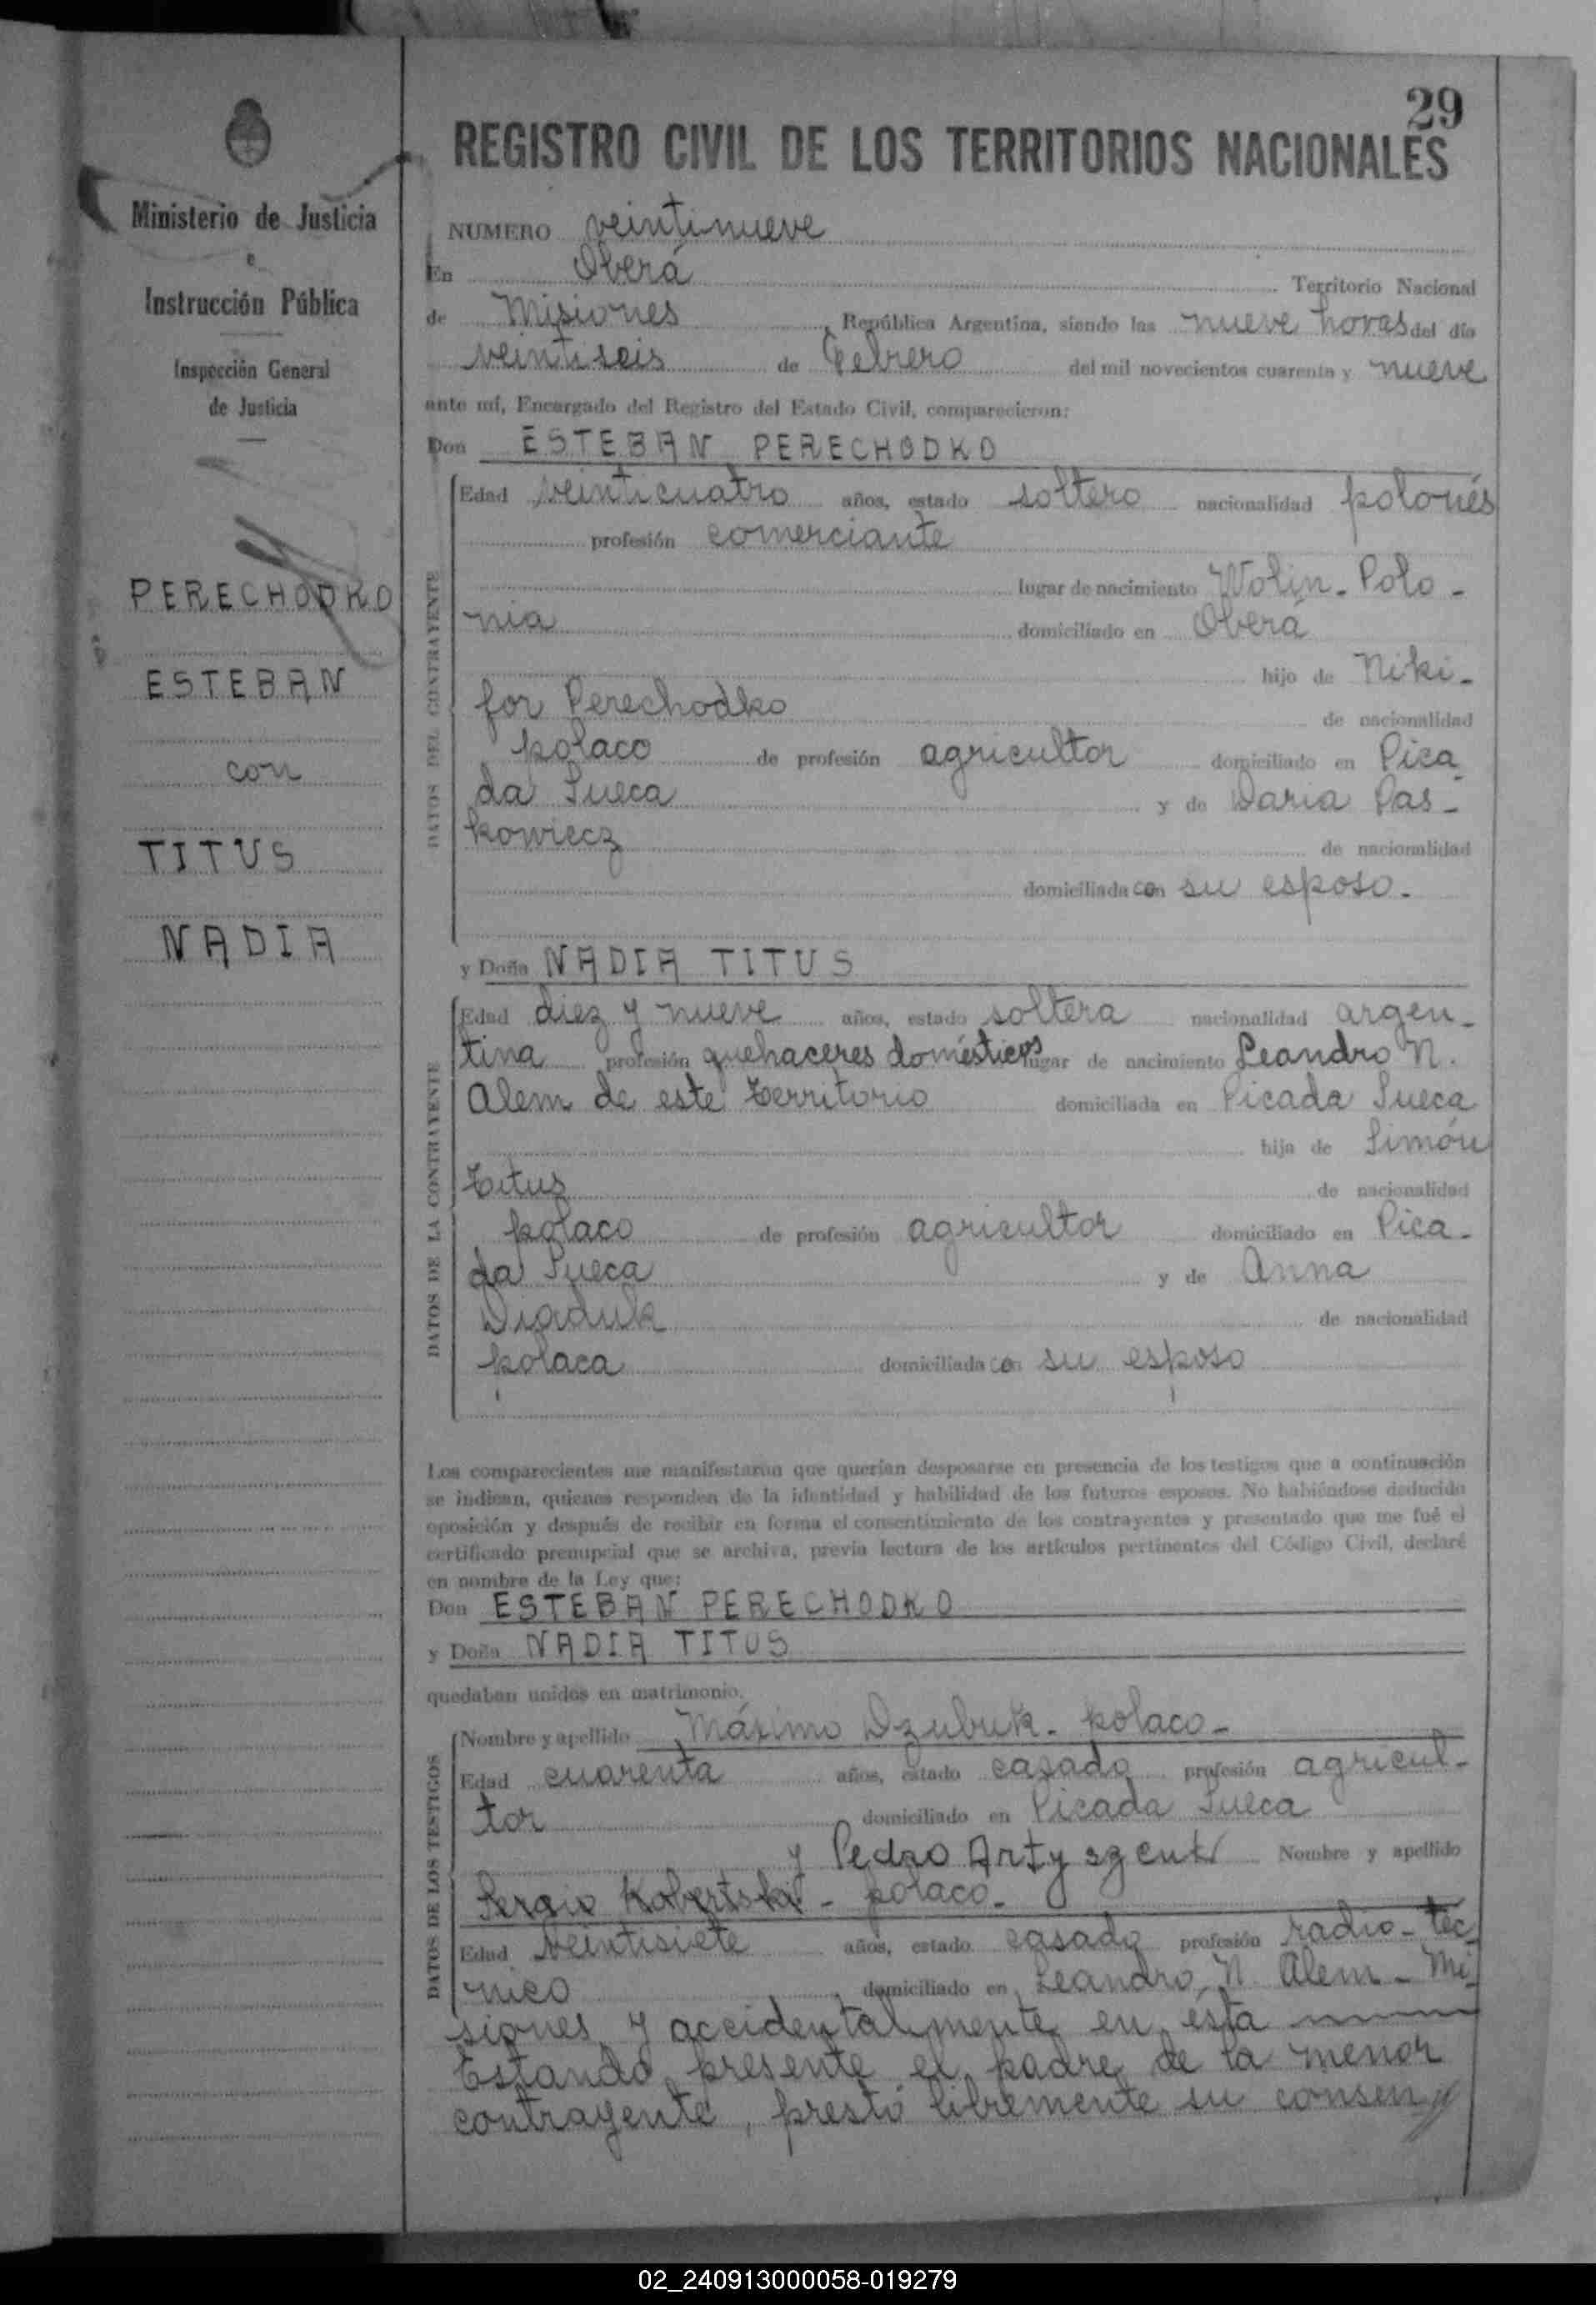 29
REGISTRO CIVIL DE LOS TERRITORIOS NACIONALES
Ministerio de Justicia
e
Instrucción Pública
Inspección General
de Justicia
PERECHODKO
ESTEBAN
con
TITUS
NADIA
NUMERO veintinueve
En Oberá Territorio Nacional
de Misiones, República Argentina, siendo las nueve horas del día
veintiseis de Febrero del mil novecientos cuarenta y nueve
ante mí, Encargado del Registro del Estado Civil, comparecieron:
Don ESTEBAN PERECHODKO
DATOS DEL CONTRAYENTE
Edad veinticuatro años, estado soltero nacionalidad polonés
profesión comerciante
lugar de nacimiento Wolin - Polo-
nia domiciliado en Oberá
hijo de Niki-
for Perechodko de nacionalidad
polaco de profesión agricultor domiciliado en Pica-
da Sueca y de Daria Pas-
kowiecz de nacionalidad
domiciliada con su esposo.
y Doña NADIA TITUS
DATOS DE LA CONTRAYENTE
Edad diez y nueve años, estado soltera nacionalidad argen-
tina profesión quehaceres domésticos lugar de nacimiento Leandro N.
Alem de este territorio domiciliada en Picada Sueca
hija de Simón
Titus de nacionalidad
polaco de profesión agricultor domiciliado en Pica-
da Sueca y de Anna
de nacionalidad
polaca domiciliada con su esposo
Los comparecientes me manifestaron que querían desposarse en presencia de los testigos que a continuación
se indican, quienes responden de la identidad y habilidad de los futuros esposos. No habiéndose deducido
oposición y después de recibir en forma el consentimiento de los contrayentes y presentado que me fué el
certificado prenupcial que se archiva, previa lectura de los artículos pertinentes del Código Civil, declaré
en nombre de la Ley que:
Don ESTEBAN PERECHODKO
y Doña NADIA TITUS
quedaban unidos en matrimonio.
DATOS DE LOS TESTIGOS
Nombre y apellido Máximo Dzubuk - polaco -
Edad cuarenta años, estado casado profesión agricul-
tor domiciliado en Picada Sueca
y Pedro Nombre y apellido
Sergio - polaco -
Edad veintisiete años, estado casado profesión radio-téc
nico, domiciliado en Leandro N. Alem - Mi-
siones y accidentalmente en esta
Estando presente el padre de la menor
contrayente, prestó libremente su consen//
02_240913000058-019279